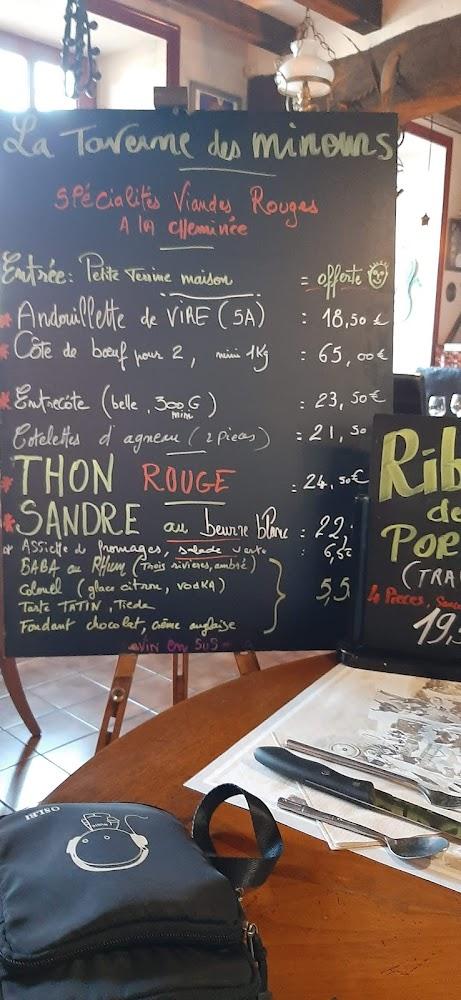 La Taverne des minours
Spécialités Viandes Rouges
A la cheminée
Entrée: Petite Terrine maison = offerte
* Andouillette de VIRE (5A) : 18,50 €
* Côte de bœuf pour 2, mini 1Kg : 65,00 €
* Entrecôte (belle, 300G) : 23,50 €
mini
Cotelettes d'agneau (2 pieces) : 21,50
* THON ROUGE : 24,50 €
* SANDRE au beurre blanc : 22,
* Assiette de fromages, salade verte : 6,50
BABA au RHUM (Trois rivières, ambré)
Colonel (glace citron, vodka) 5,5
Tarte TATIN, Tiède
Fondant chocolat, crème anglaise
VIN en SUS
Rib
de
POR
(TRA
4 Pieces, Sauc
19,
OSLBI